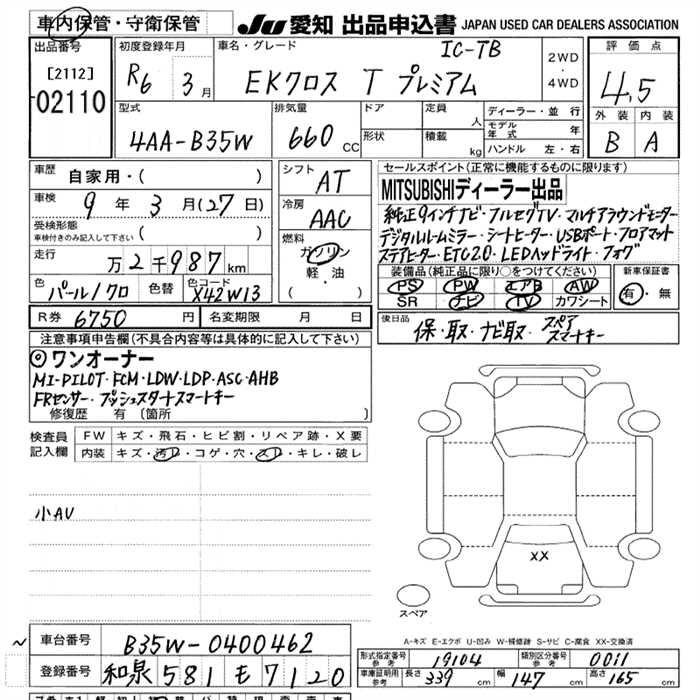 車内保管・守衛保管
JU 愛知 出品申込書 JAPAN USED CAR DEALERS ASSOCIATION
出品番号
[2112]
02110
初度登録年月
R6 3月
車名・グレード
IC-TB
EKクロス T プレミアム
2WD
・
4WD
評価点
4.5
外装 内装
B A
型式
4AA-B35W
排気量
660 CC
ドア
形状
定員
人
積載
kg
ディーラー・並行
モデル年式 年
ハンドル 左・右
車歴
自家用・( )
車検
9年 3月(27日)
受検形態
車検付きのみ記入して下さい ( )
走行
万2千987km
色
パール/クロ
色替
色コード
X42W13
シフト
AT
冷房
AAC
燃料
ガソリン
軽・油
( )
セールスポイント(正常に機能するものに限ります)
MITSUBISHIディーラー出品
純正9インチナビ・フルセグTV・マルチアラウンドモニター
デジタルルームミラー・シートヒーター・USBポート・フロアマット
ステアヒーター・ETC2.0・LEDヘッドライト・フォグ
装備品(純正品に限り○をつけてください)
PS PW エアB AW
SR ナビ TV カワシート
新車保証書
有・無
R券 6750円
名変期限 月 日
後日品
保・取・ナビ取・スペアスマートキー
注意事項申告欄(不具合内容等は具体的に記入して下さい)
◎ワンオーナー
MI-PILOT・FCM・LDW・LDP・ASC・AHB
FRセンサー・プッシュスタートスマートキー
修復歴 有 〔箇所 〕
検査員
記入欄
FW キズ・飛石・ヒビ割・リペア跡・X要
内装 キズ・汚レ・コゲ・穴・スレ・キレ・破レ
小AU
XX
スペア
A-キズ E-エクボ U-凹み W-補修跡 S-サビ C-腐食 XX-交換済
~
車台番号
B35W-0400462
登録番号
和泉 581 モ 7120
形式指定番号
参考
19104
類別区分番号
参考
0011
車庫証明用
参考
長さ 339 cm 幅 147 cm 高さ 165 cm